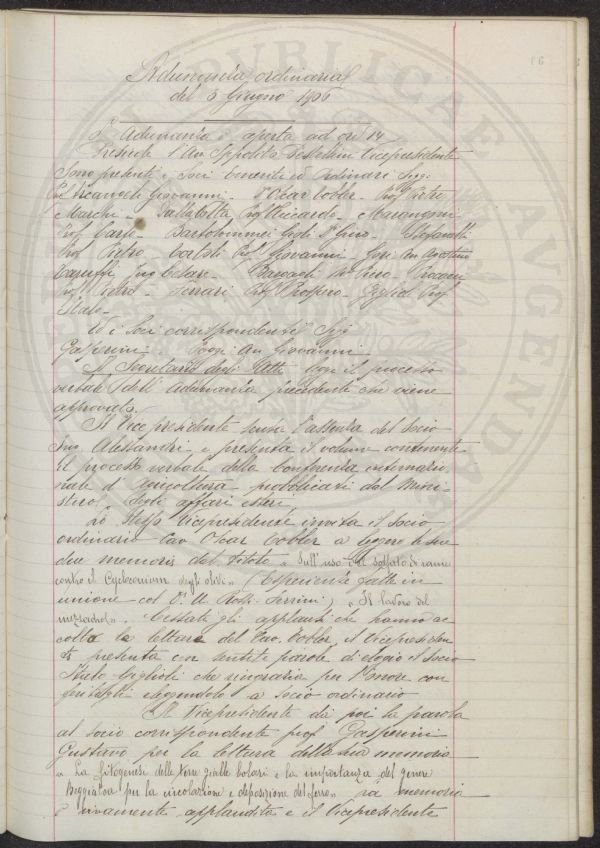 Adunanza ordinaria
del 3 Giugno 1906
L'adunanza è aperta ad ore 14
Presiede l'Avv. Ippolito Pestellini Vicepresidente
Sono presenti i Soci Emeriti ed Ordinari Sigg:
Arcangeli Giovanni - Oscar Tobler - Prof. Pietro
Marchi - Prof. Riccardo - Marangoni
Prof. Carlo - Bartolommei Gioli Dr. Gino - Stefanelli
Prof. Pietro - Prof. Giovanni
Ing. Cesare - Passerini
Prof. - Ferrari Prof. Prospero - Giglioli Prof.
Italo -
Ed i Soci corrispondenti Sigg.
Gasperini - Giovanni
Il Segretario degli Atti legge il processo
verbale dell'adunanza precedente che viene
approvato.
Il Vice presidente scusa l'assenza del Socio
Ing. Alessandri e presenta il volume contenente
il processo verbale della Conferenza internazio
nale d'agricoltura pubblicati dal Mini-
stero degli affari esteri.
Lo stesso Vicepresidente invita il Socio
ordinario Cav. Oscar Tobler a leggere le sue
due memorie dal titolo "Sull'uso del solfato di rame
contro il Cycloconium degli olivi" (Esperienze fatte in
unione col Dr. U. Rossi-Ferrini) "Il lavoro del
mezzadro". Cessati gli applausi che hanno ac
colta la lettura del Cav. Tobler, il Vicepresiden
te presenta con sentite parole di elogio il Socio
Italo Giglioli che ringrazia per l'onore con
feritogli eleggendolo a socio ordinario
Il Vicepresidente dà poi la parola
al socio corrispondente prof. Gasperini
Gustavo per la lettura della sua memoria
"La fitogenesi delle terre gialle bolari e la importanza del genere
Beggiatoa per la circolazione e deposizione del ferro" La memoria
è vivamente applaudita e il Vicepresidente